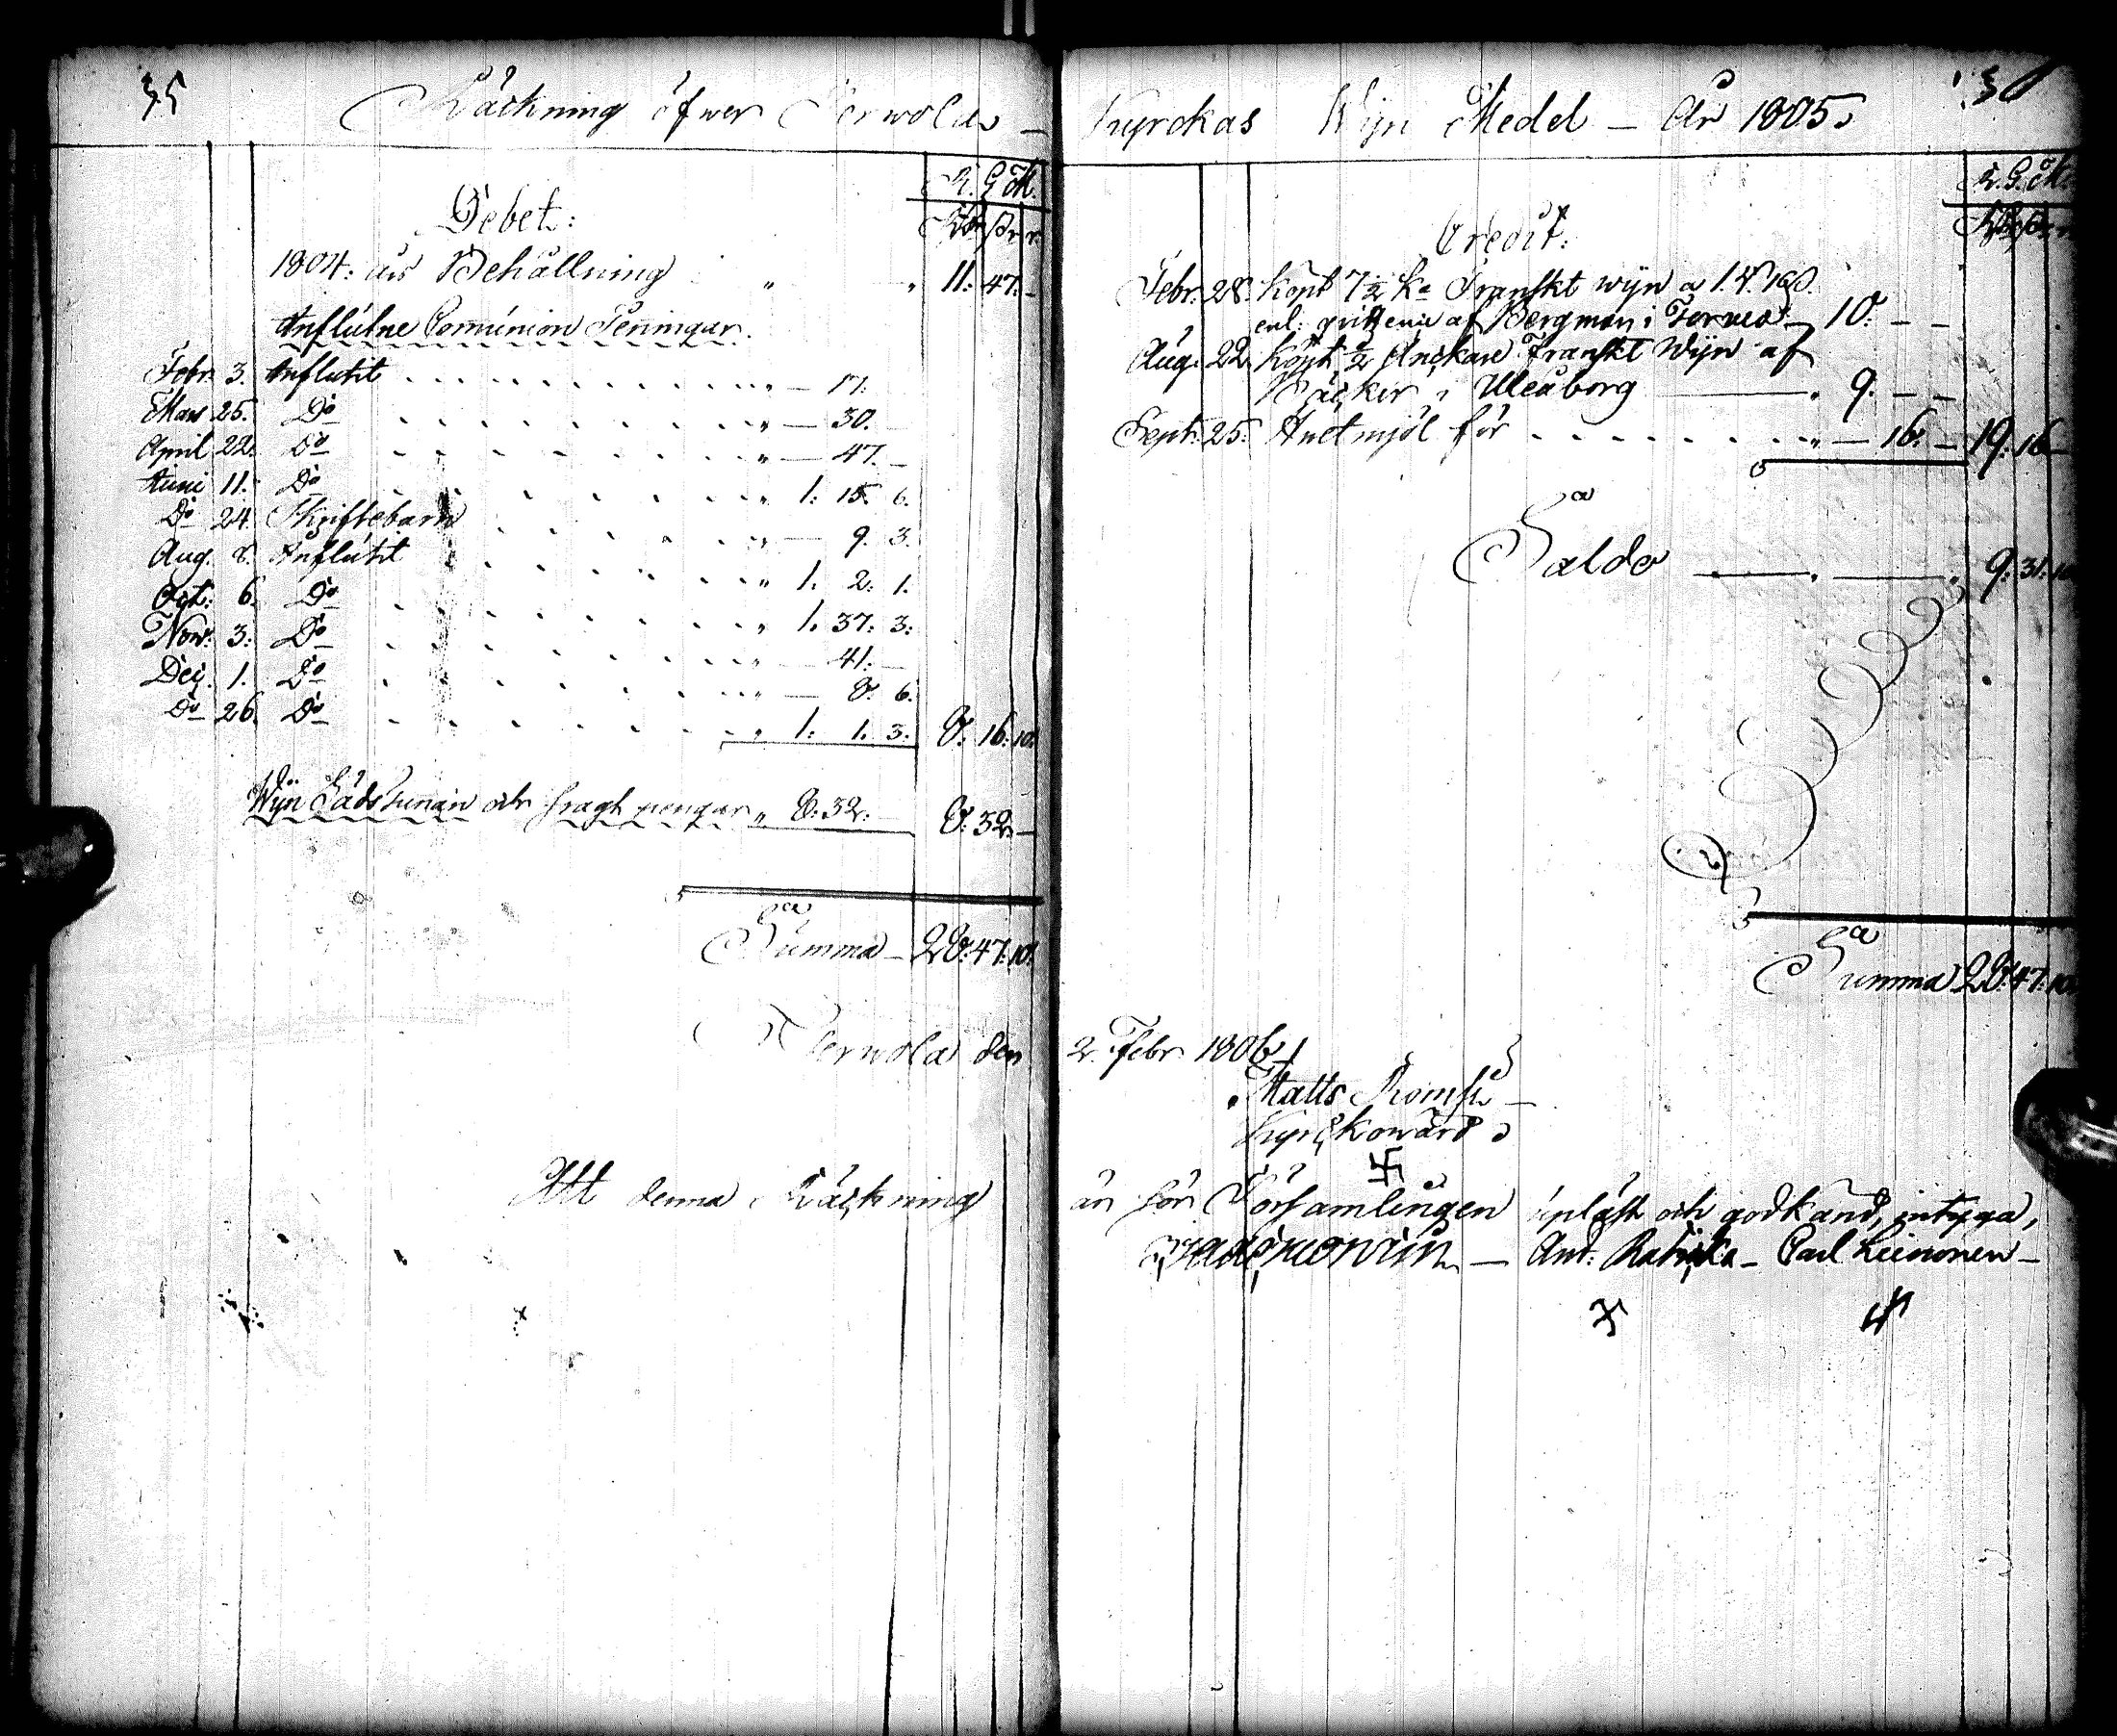 35
Räckning öfwer Terwola
R. G. M.
Debet:
1804. års Behållning 11: 47. –
Influtne Communion Peningar.
Febr. 3. Influtit – 17.
Mars 25. Do – 30. –
April 22. Do – 47. –
Junii 11. Do 1: 15. 6.
Do 24. Skriftebarn – 9. 3.
Aug. 8. Influtit 1. 2: 1.
Oct: 6. Do 1. 37: 3:
Now: 3: Do – 41: –
Dec. 1. Do – 8. 6.
Do 26. Do 1: 1. 3: 8: 16: 10.
Wijn och fragt pengar 8: 32: – 8: 32: –
Summa – 28: 47: 10.
Terwola den
Att denna Räckning
Kyrckas Wijn Medel – År 1805.
R. G. M.
Credit:
Febr. 28. Köpt 7 1/2 Franskt wijn a
enl. af Bergman i Torneå 10: – –
Aug. 22. Köpt 1/2 Anckare Franskt Wijn af
i Uleåborg 9. – –
Sept: 25. för – 16: – 19: 16 –
Saldo 9: 31: 10
Summa 28: 47: 10
2. Febr. 1806
Matts
Kyrckowärd
är för Församlingen upläst och godkänd, intyga,
And: – Carl